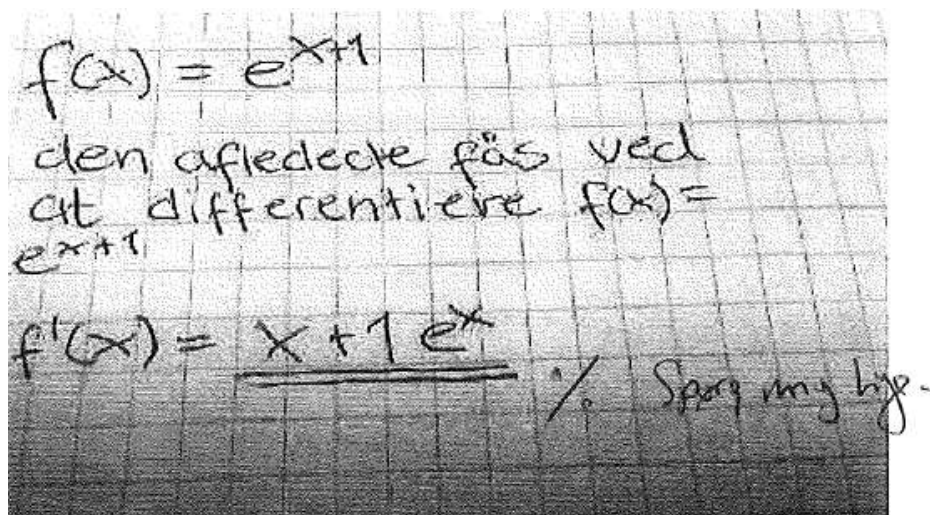 f(x) = e^{x+1}
den afledede fås ved
at differentiere f(x) =
e^{x+1}
f'(x) = x + 1 e^x
%. Spørg mig lige.